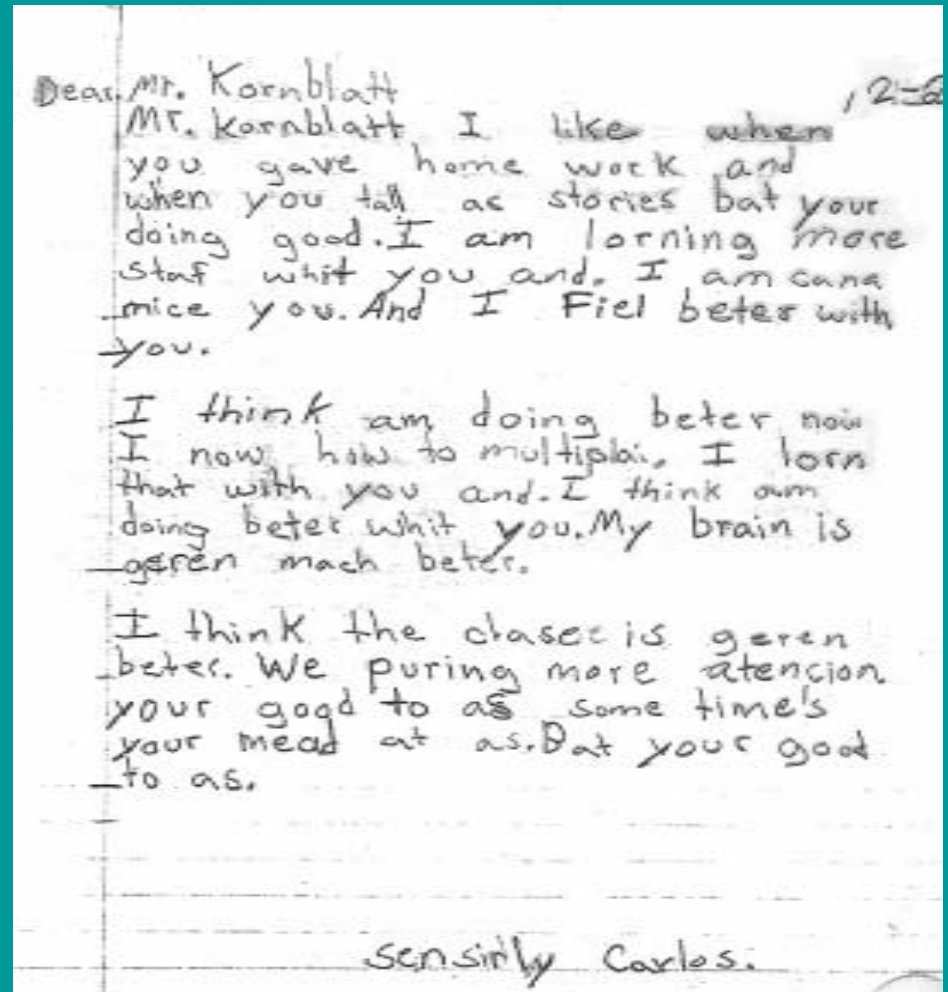 Dear Mr. Kornblatt
, 2-6
Mr. Kornblatt I like when
you gave home work and
when you tall as stories bat your
doing good. I am lorning more
staf whit you and. I am cana
mice you. And I Fiel beter with
you.
I think am doing beter now
I now how to multiplai. I lorn
that with you and. I think am
doing beter whit you. My brain is
geren mach beter.
I think the clasee is geren
beter. We puring more atencion
your good to as some time's
your mead at as. Bat your good
to as.
sensirlly Carlos.